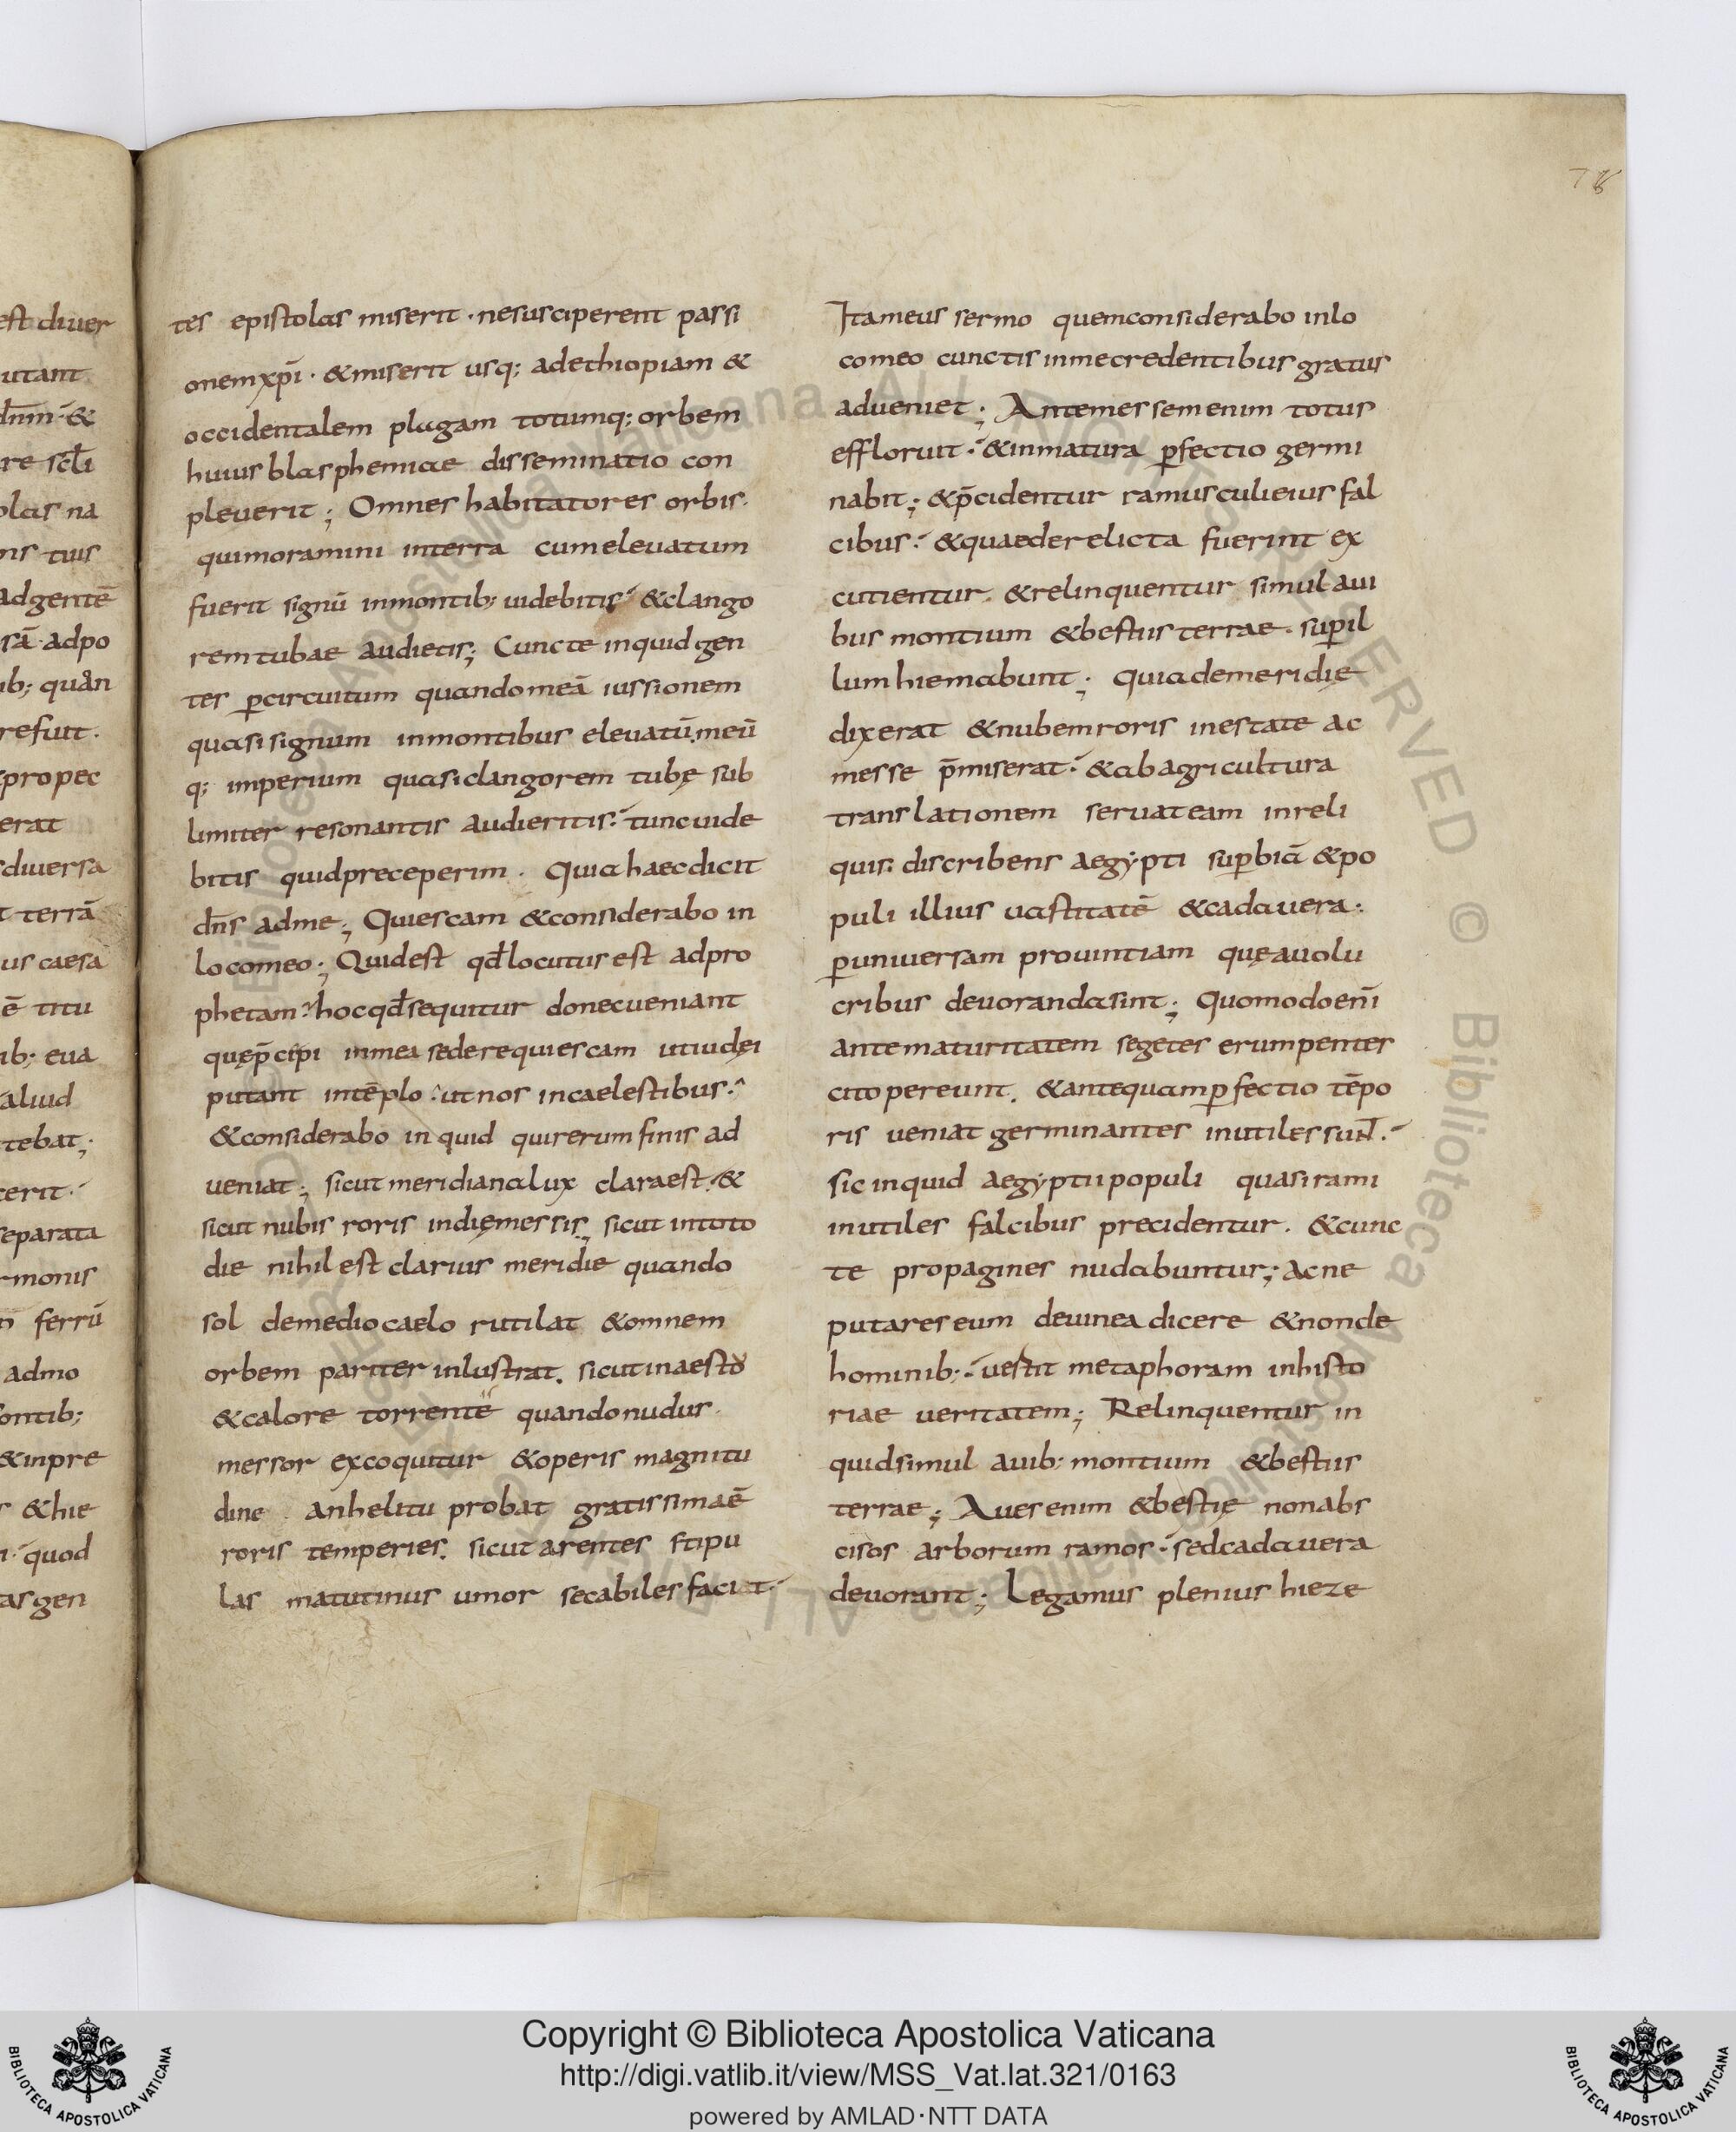 est diuer
utant
dn̄m· &
re sc̄li
olas na
ns tuis
ad gentē
sā· adpo
ib; quan
refuit·
propec
erat
diuersa
t terrā
us caesa
ē titu
ib; eua
aliud
tebat;
cerit·
separata
rmonis
ferrū
admo
ontib;
&inpre
& hie
quod
as gen
tes epistolas miserit · nesusciperent passi
onem xp̄i · &miserit usq; adethiopiam &
occidentalem plagam totumq; orbem
huius blasphemiae disseminatio con
pleuerit; Omnes habitatores orbis·
quimoramini interra cumeleuatum
fuerit signū inmontib; uidebitis· &clango
remtubae audietis; Cuncte inquid gen
tes pcircuitum quando meā iussionem
quasi signum inmontibus eleuatū. meū
q; imperium quasi clangorem tubę sub
limiter resonantis audieritis· tunc uide
bitis quidpreceperim · Quia haec dicit
dn̄s adme; Quiescam &considerabo in
locomeo; Quid est qđ locutus est adpro
phetam? hoc qđ sequitur donecueniant
quęp̄cipi inmea sede requiescam utiudęi
putant intēplo· ut nos incaelestibus·
&considerabo inquid quirerum finis ad
ueniat; sicut meridiana lux clara est· &
sicut nubis roris indięmessis; sicut intoto
die nihil est clarius meridie quando
sol demedio caelo rutilat &omnem
orbem pariter inlustrat. sicut inaesto
&calore torrente quando nudus·
messor excoquitur &operis magnitu
dine anhelitu probat gratissimaē
roris temperies. sicut arentes stipu
las matutinus umor secabiles faciat·
Itameus sermo quemconsiderabo inlo
comeo cunctis inme credentibus gratus
adueniet; Antemessem enim totus
effloruit· &inmatura pfectio germi
nabit; &p̄cidentur ramusculi eius fal
cibus· &quaederelicta fuerint ex
cutientur &relinquentur simul aui
bus montium &bestiis terrae· supil
lum hiemabunt; Quia demeridię
dixerat &nubemroris inestate ac
messe p̄miserat· &abagricultura
translationem seruat eam inreli
quis: discribens aegypti supbiā &po
puli illius uastitatē &cadauera·
puniuersam prouintiam quęauolu
cribus deuoranda sint; Quomodo enī
antematuritatem segetes erumpentes
cito pereunt. &antequam pfectio tēpo
ris ueniat germinantes inutiles sunt·
sic inquid aegyptii populi quasi rami
inutiles falcibus precidentur. &cunc
te propagines nudabuntur; Acne
putares eum deuinea dicere &nonde
hominib; uestit metaphoram inhisto
riae ueritatem; Relinquentur in
quid simul auib; montium &bestiis
terrae; Aues enim &bestię nonabs
cisos arborum ramos· sed cadauera
deuorant; Legamus plenius hieze
Copyright © Biblioteca Apostolica Vaticana
http://digi.vatlib.it/view/MSS_Vat.lat.321/0163
powered by AMLAD·NTT DATA
BIBLIOTECA APOSTOLICA VATICANA
BIBLIOTECA APOSTOLICA VATICANA